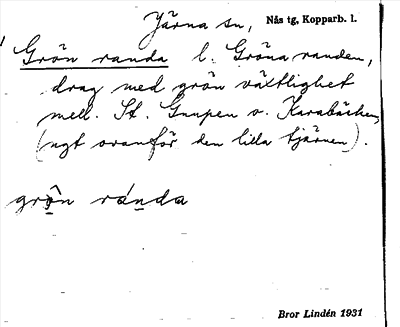 Järna sn, Nås tg, Kopparb. l.
Grön randa l. Gröna randen,
drag med grön växtlighet
mell. St. Gnupen o. Karabäcken
(ngt ovanför den lilla tjärnen).
grôn ránda
Bror Lindén 1931